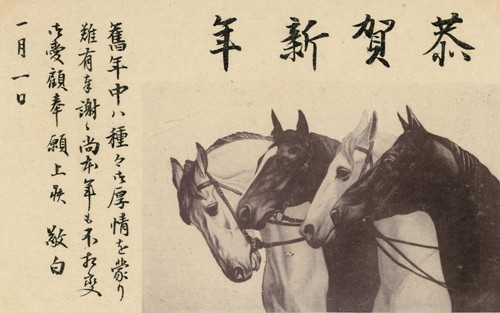 恭賀新年
舊年中ハ種々御厚情を蒙り
難有奉謝候尚本年も不相変
御愛顧奉願上候 敬白
一月一日